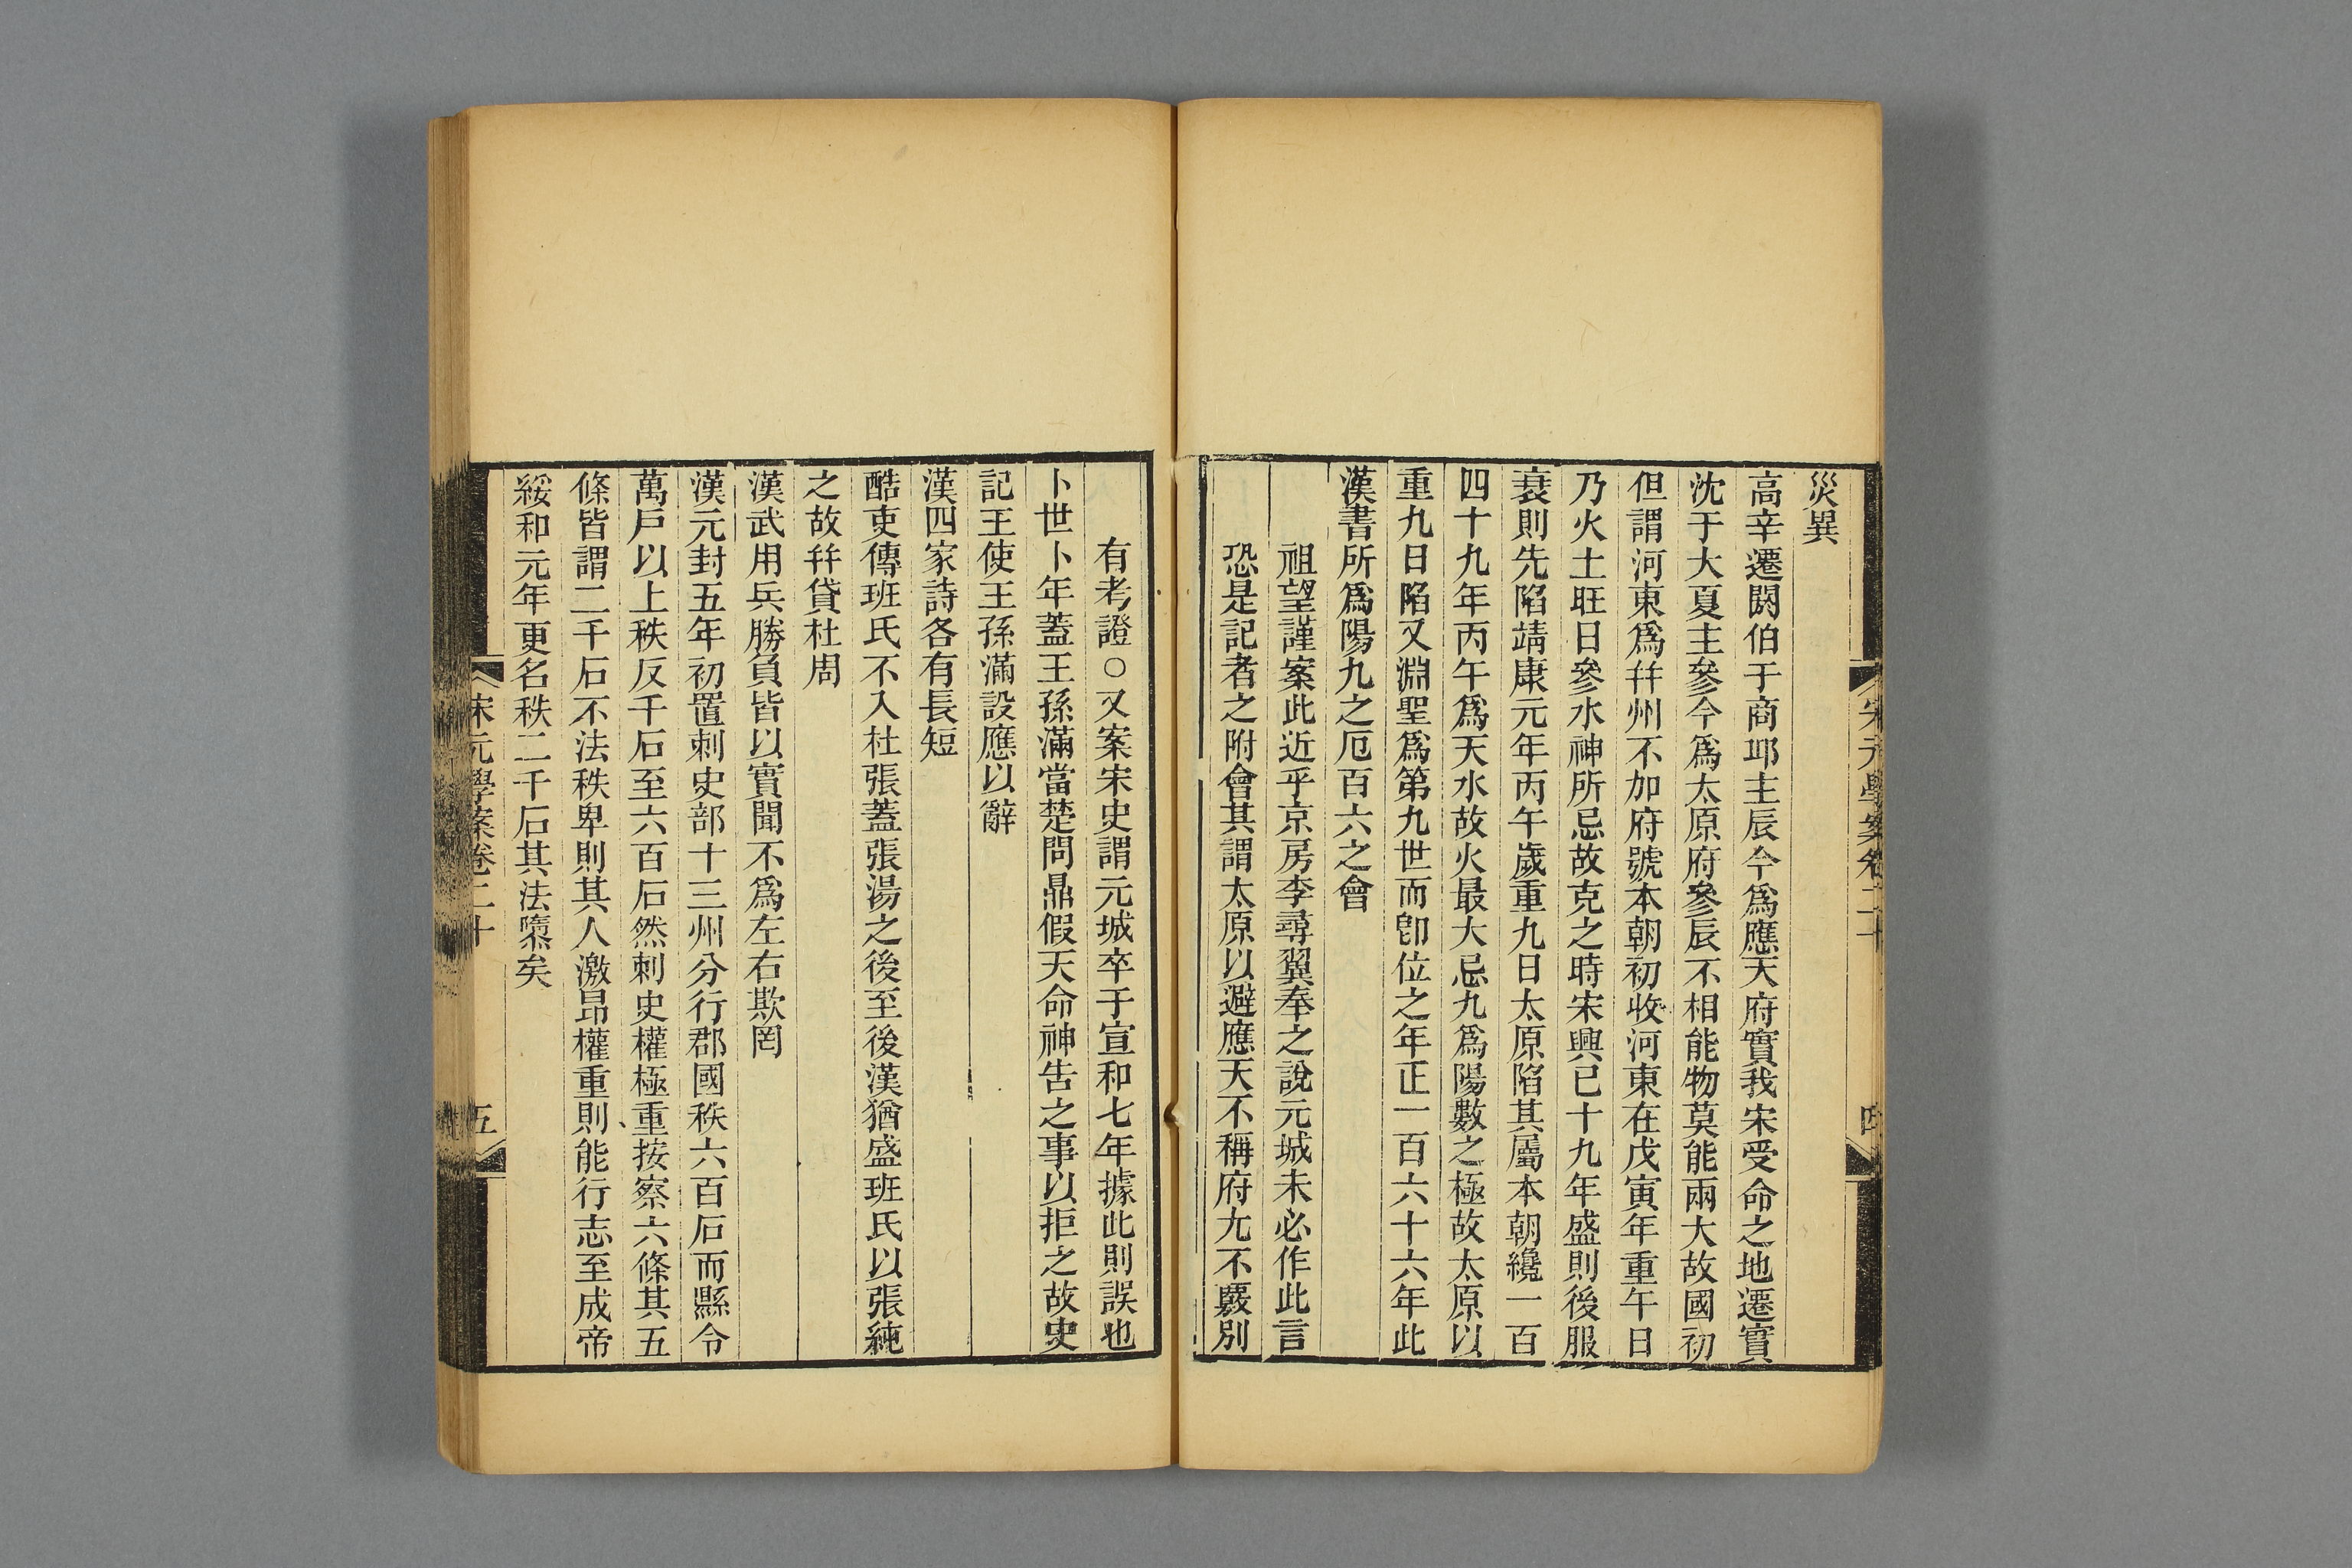 災異
高辛遷閼伯于商邱主辰今爲應天府實我宋受命之地遷實
沈于大夏主參今爲太原府參辰不相能物莫能兩大故國初
但謂河東爲幷州不加府號本朝初收河東在戊寅年重午日
乃火土旺日參水神所忌故克之時宋興已十九年盛則後服
衰則先陷靖康元年丙午歲重九日太原陷其屬本朝纔一百
四十九年丙午爲天水故火最大忌九爲陽數之極故太原以
重九日陷又淵聖爲第九世而卽位之年正一百六十六年此
漢書所爲陽九之厄百六之會
祖望謹案此近乎京房李尋翼奉之說元城未必作此言
恐是記者之附會其謂太原以避應天不稱府尤不覈別
宋元學案卷二十
四
有考證○又案宋史謂元城卒于宣和七年據此則誤也
卜世卜年蓋王孫滿當楚問鼎假天命神告之事以拒之故史
記王使王孫滿設應以辭
漢四家詩各有長短
酷吏傳班氏不入杜張蓋張湯之後至後漢猶盛班氏以張純
之故幷貸杜周
漢武用兵勝負皆以實聞不爲左右欺罔
漢元封五年初置刺史部十三州分行郡國秩六百石而縣令
萬戶以上秩反千石至六百石然刺史權極重按察六條其五
條皆謂二千石不法秩卑則其人激昂權重則能行志至成帝
綏和元年更名秩二千石其法隳矣
宋元學案卷二十
五